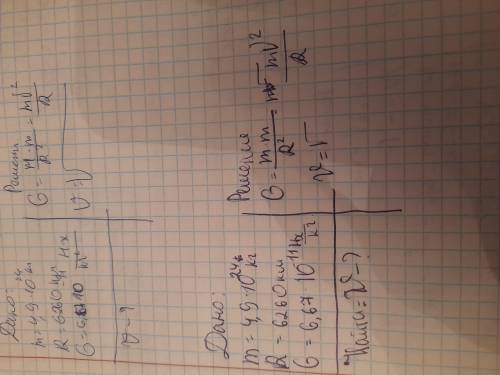 Дано:
m = 4,9·10²⁴ кг
R = 6260 км
G = 6,10
v = ?
Решение
G = m·m / R² = mv² / R
v = √
Дано:
m = 4,9·10²⁴ кг
R = 6260 км
G = 6,67 10⁻¹¹ Нх / кг
Найти = v - ?
Решение
G = m m / R² = mv² / R
v = √